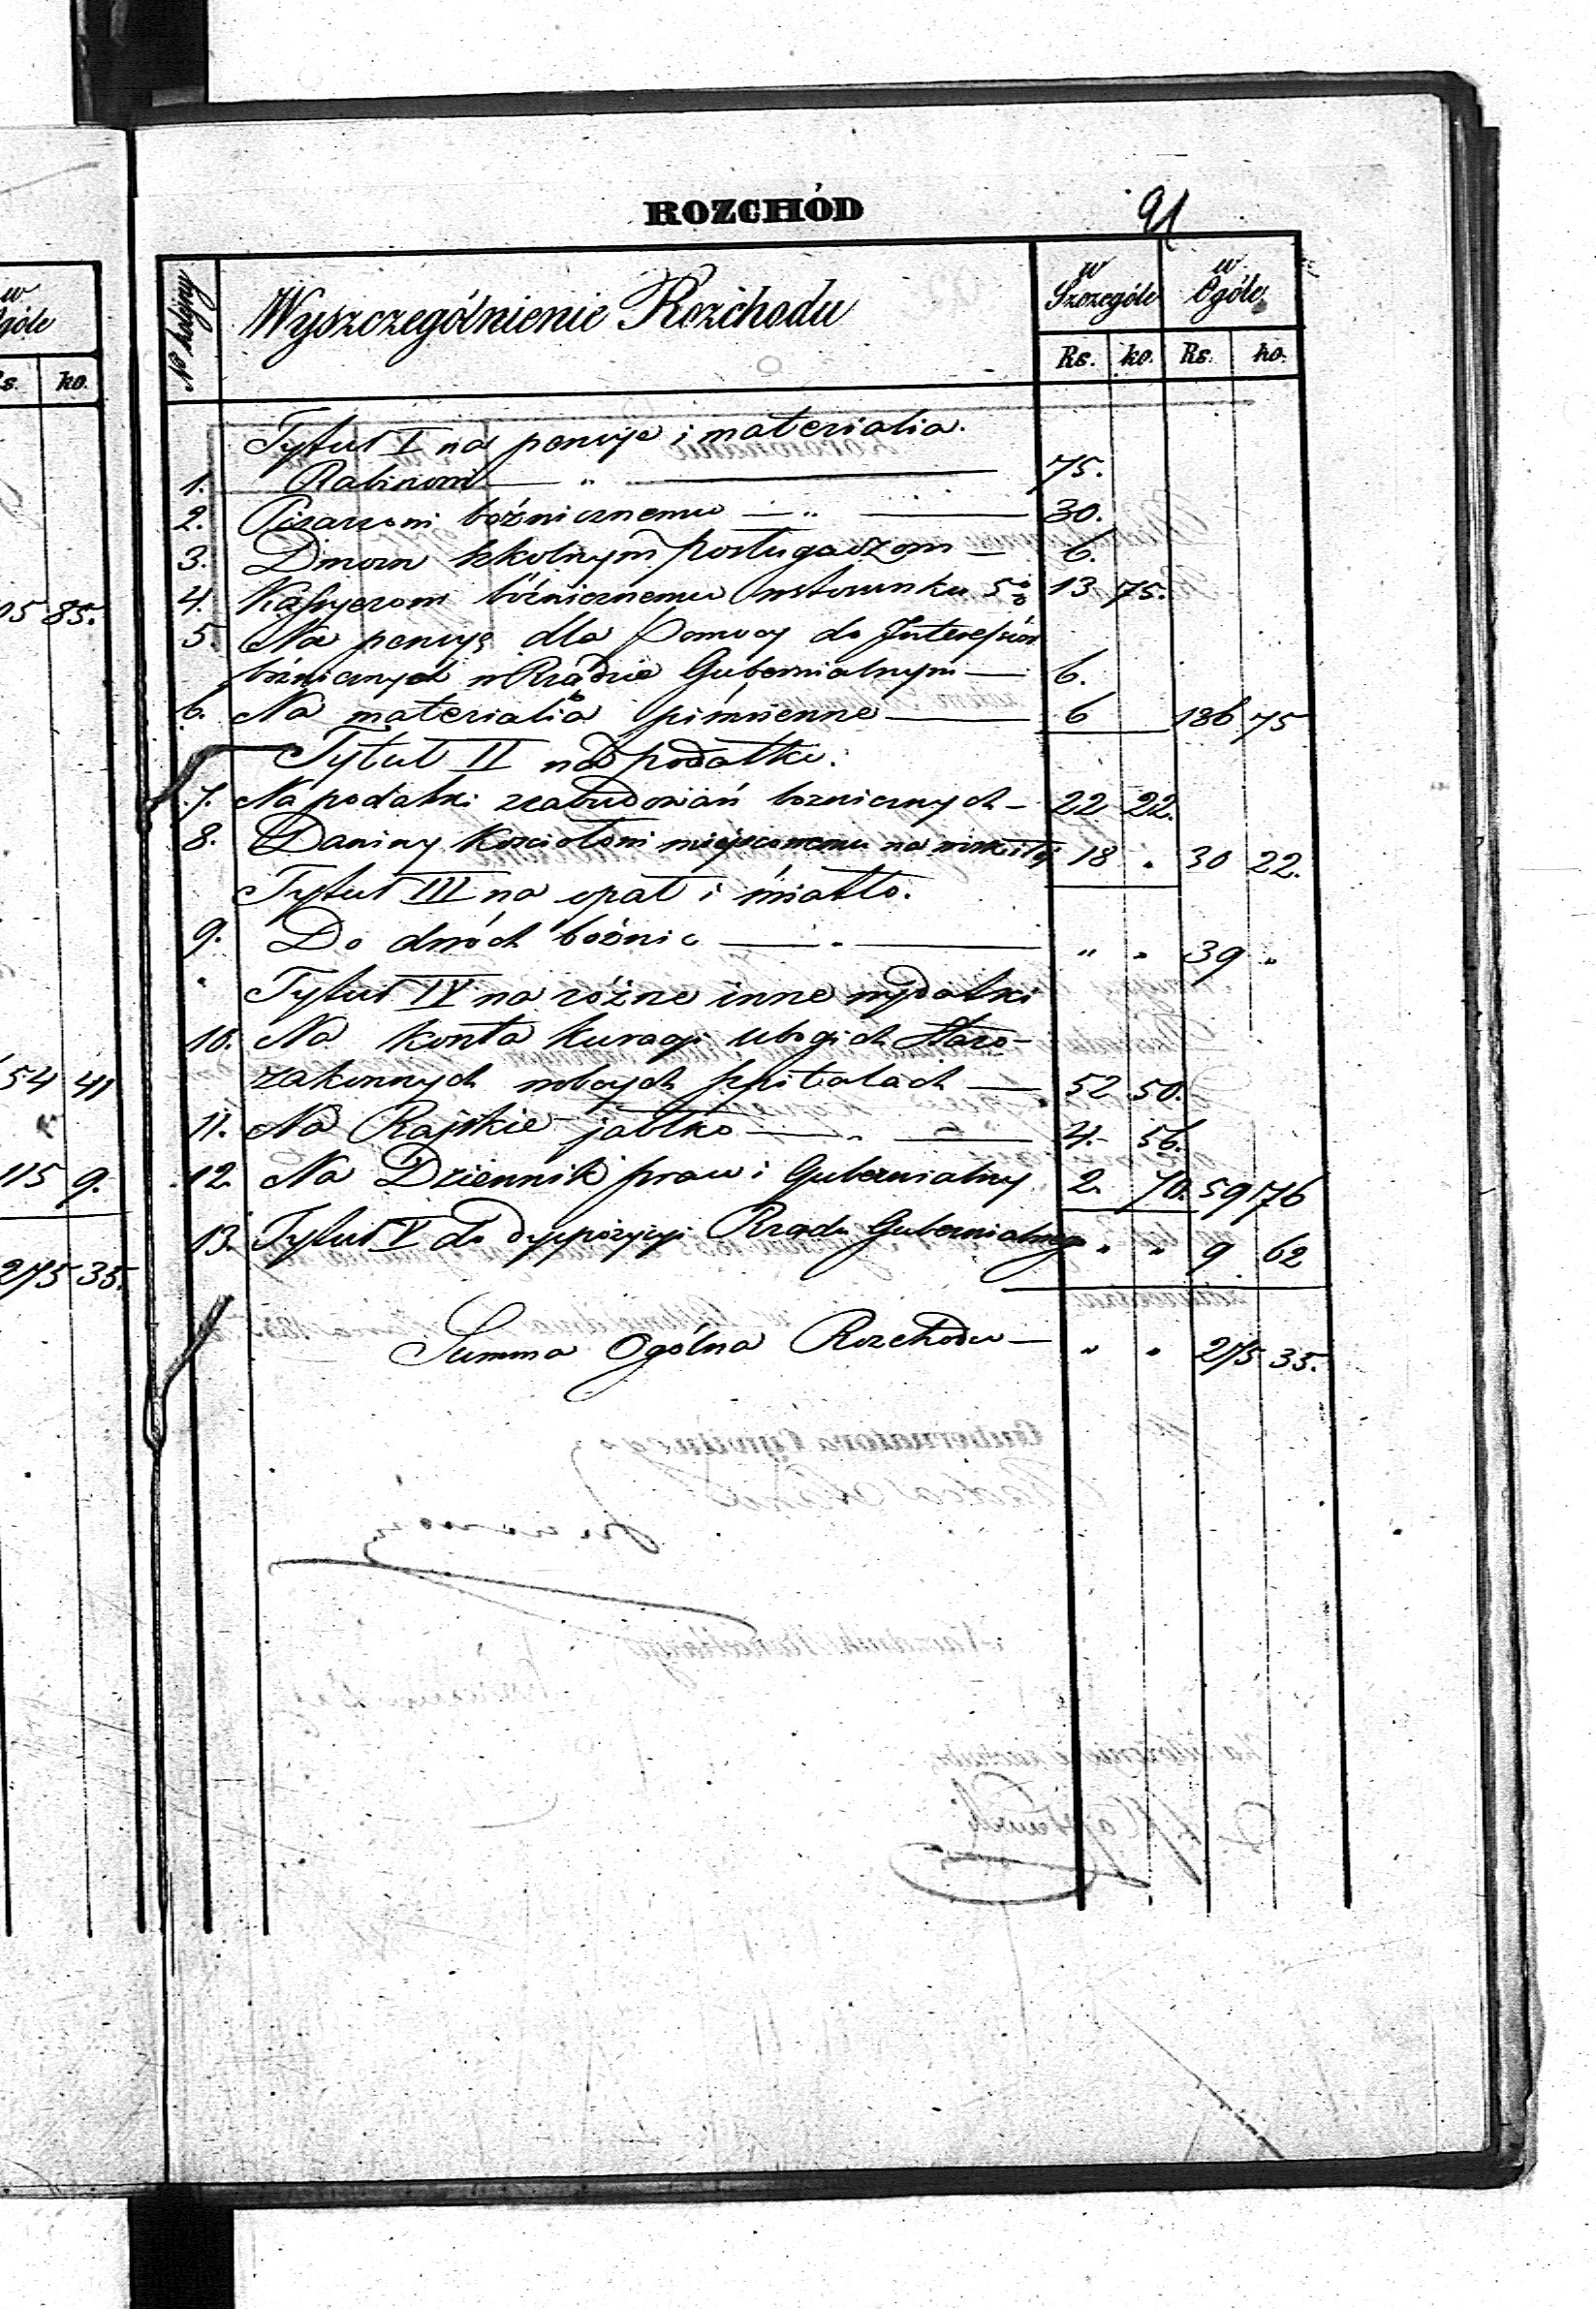 ROZCHÓD
91
No kolejny
Wyszczególnienie Rozchodu
w Szczególe
w Ogóle
Rs. ko. Rs. ko.
Tytuł I na pensye i materialia.
1. Rabinowi — " — 75.
2. Pisarzowi bóźnicznemu — " — 30.
3. Dwom szkolnym posługaczom — 6.
4. Kassyerowi bóźnicznemu w stosunku 5% 13 75.
5. Na pensyę dla Pomocy do Interessów
bóźnicznych w Rządzie Gubernialnym — 6.
6. Na materialia piśmienne — 6 136 75
Tytuł II na podatki.
7. Na podatki z zabudowań boznicznych — 22 22.
8. Daniny Kościołowi miejscowemu na 18 " 30 22.
Tytuł III na opał i światło.
9. Do dwóch bóźnic — " — " " 39 "
Tytuł IV na różne inne wydatki
10. Na konta kuracyi ubogich Staro-
zakonnych w obcych szpitalach — 52 50.
11. Na Rajskie jabłko — " — 4. 56.
12. Na Dziennik praw i Gubernialny 2. 70. 59 76
13. Tytuł V do dyspozycyi Rządu Gubernialnego " " 9 62
Summa Ogólna Rozchodu — " " 275 35.
w Ogóle
Rs. ko.
05 85.
54 41
115 9.
275 35.